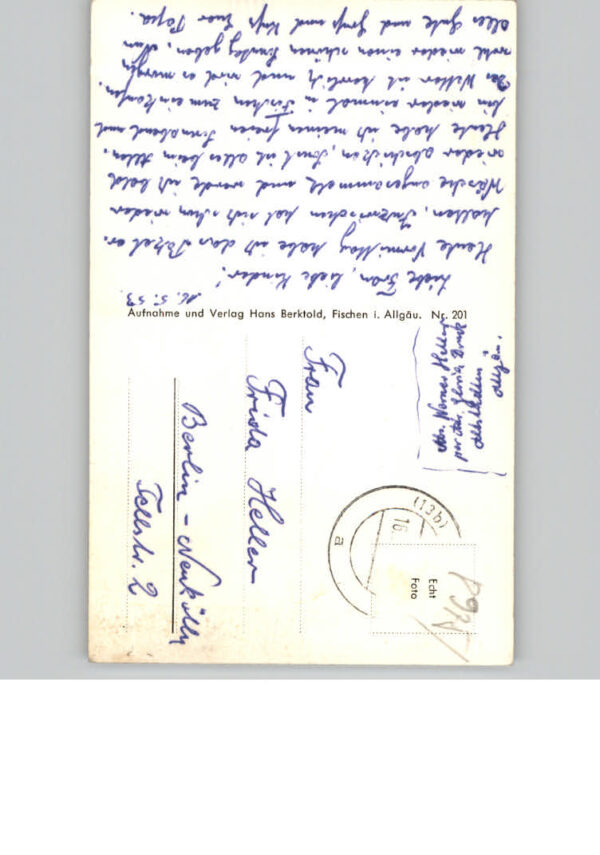 16. 5. 53.
Liebe Frau, liebe Kinder!
Heute Vormittag habe ich das Paket er-
halten. Inzwischen hat sich schon wieder
Wäsche angesammelt und werde ich bald
wieder abschicken. Sonst ist alles beim Alten.
Heute habe ich meinen freien Sonnabend und
bin wieder einmal in Fischen zum einkaufen.
Das Wetter ist herrlich und wird es morgen
wohl wieder einen schönen Sonntag geben. Nun
alles Gute und Gruß und Kuß Euer Papa.
Aufnahme und Verlag Hans Berktold, Fischen i. Allgäu. Nr. 201
Abs. Werner Heller
Allgäu.
Frau
Frida Heller
Berlin-Neukölln
Tellstr. 2
(13b)
16.
a
Echt
Foto